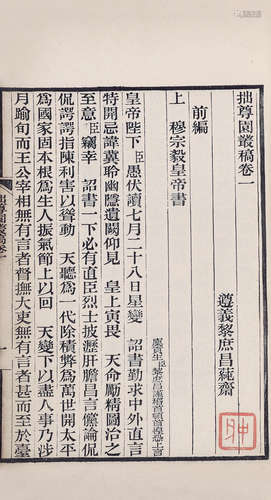 拙尊園叢稿卷一
遵義黎庶昌蒓齋
前編
上穆宗毅皇帝書
皇帝陛下臣愚伏讀七月二十八日星變詔書勤求中外直言
特開忌諱冀聆幽隱遺闕仰見皇上寅畏天命勵精圖治之
至意臣竊幸詔書一下必有直臣烈士披瀝肝膽昌言黨論侃
侃諤諤指陳利害以聳動天聽為一代除積弊為萬世開太平
為國家固本根為生人振氣節上以回天變下以盡人事乃涉
月踰旬而王公宰相無有言者督撫大吏無有言者甚而至於臺
拙尊園叢稿卷一
一